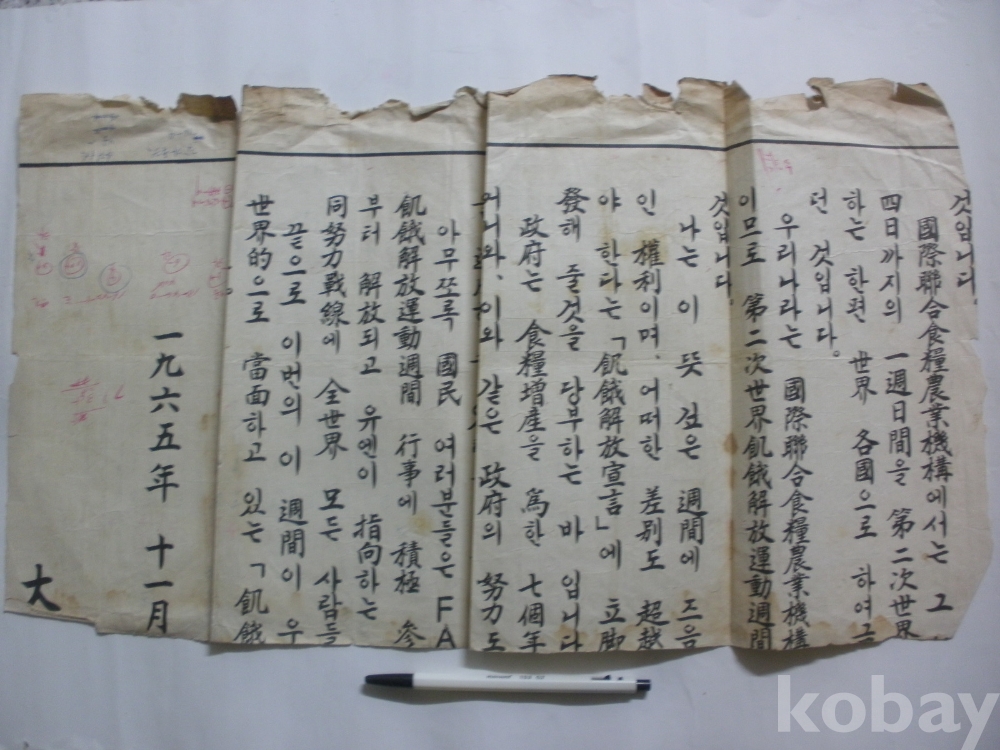 것입니다.
國際聯合食糧農業機構에서는 그
四日까지의 一週日間을 第二次世界
하는 한편 世界 各國으로 하여금
던 것입니다.
우리나라는 國際聯合食糧農業機構
이므로 第二次世界飢餓解放運動週間
것입니다.
나는 이 뜻 깊은 週間에 즈음
인 權利이며. 어떠한 差別도 超越
야 한다는 「飢餓解放宣言」에 立脚
發해 줄것을 당부하는 바 입니다
政府는 食糧增産을 爲한 七個年
거니와, 이와 같은 政府의 努力도
아무쪼록 國民 여러분들은 FA
飢餓解放運動週間 行事에 積極 參
부터 解放되고 유엔이 指向하는
同努力戰線에 全世界 모든 사람들
끝으로 이번의 이 週間이 우
世界的으로 當面하고 있는 「飢餓
一九六五年 十一月
大
kobay